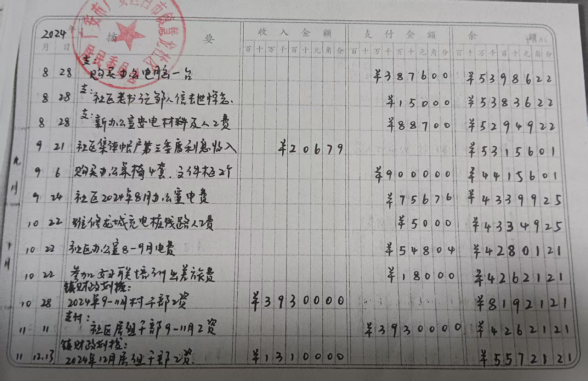 2024年
摘 要 收入金额 支付金额 余 额
月 日 百十万千百十元角分 百十万千百十元角分 百十万千百十元角分
支:
8 28 购买办公电脑一台 ¥387600 ¥5398622
8 28 支:社区老书记部人信去世悼念 ¥15000 ¥5383622
8 28 支:新办公室安电材料及人工费 ¥88700 ¥5294922
9 21 社区集体帐户第三季度利息收入 ¥20679 ¥5315601
9 6 购买办公桌椅4套、文件柜2个 ¥900000 ¥4415601
9 24 社区2024年8月办公室电费 ¥75676 ¥4339925
10 22 维修龙城充电桩线路人工费 ¥5000 ¥4334925
10 22 社区办公室8-9月电费 ¥54804 ¥4280121
10 22 参加妇联培训出差旅费 ¥18000 ¥4262121
镇财政划拨:
10 28 2024年9-11月村干部工资 ¥3930000 ¥8192121
支付:
11 11 社区居组干部9-11月工资 ¥3930000 ¥4262121
镇财政划拨:
11 12.13 2024年12月居组干部工资 ¥1310000 ¥5572121